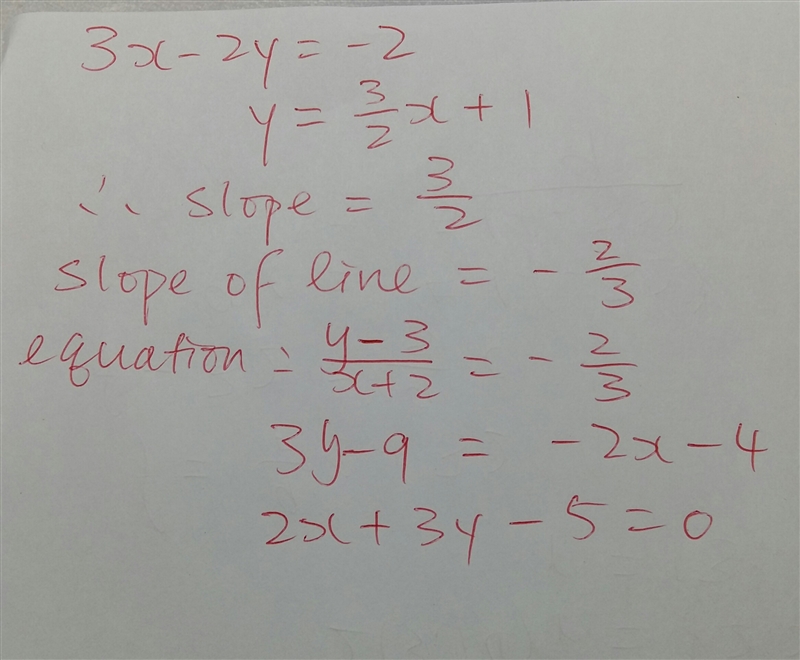 3x - 2y = -2
y = 3/2 x + 1
∴ slope = 3/2
slope of line = - 2/3
equation: (y - 3)/(x + 2) = - 2/3
3y - 9 = -2x - 4
2x + 3y - 5 = 0